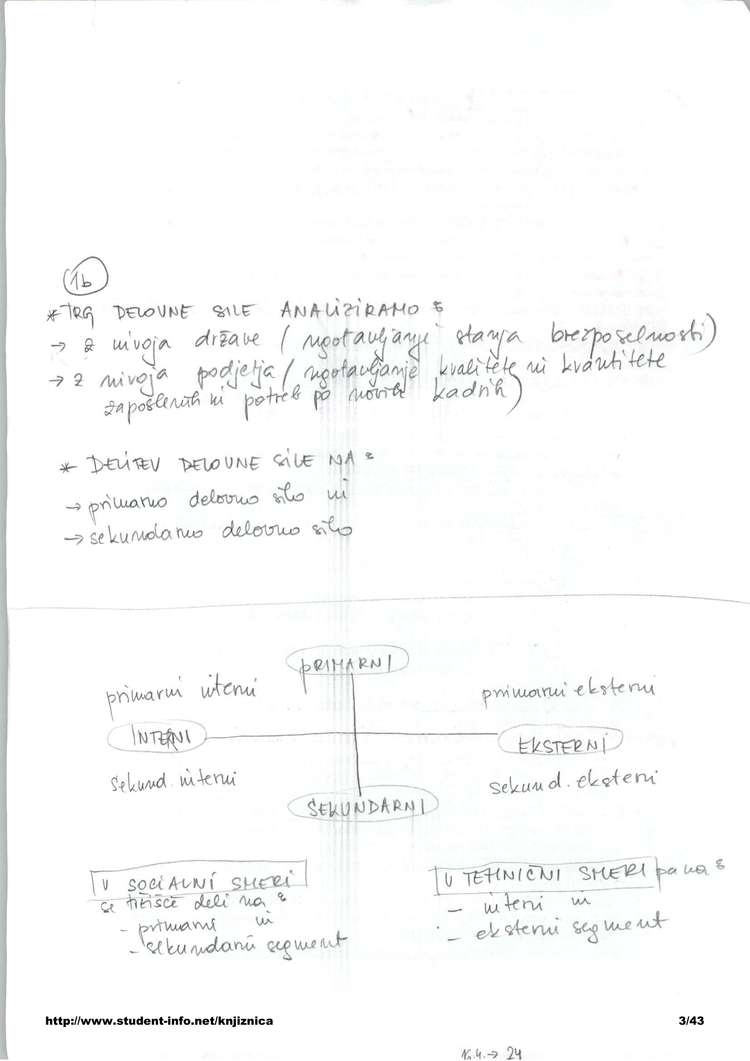 1b
* TRG DELOVNE SILE ANALIZIRAMO:
→ z nivoja države (ugotavljanje stanja brezposelnosti)
→ z nivoja podjetja (ugotavljanje kvalitete in kvantitete
zaposlenih in potreb po novih kadrih)
* DELITEV DELOVNE SILE NA:
→ primarno delovno silo in
→ sekundarno delovno silo
PRIMARNI
primarni interni
primarni eksterni
INTERNI
EKSTERNI
sekund. interni
sekund. eksterni
SEKUNDARNI
V SOCIALNI SMERI
se tržišče deli na:
- primarni in
- sekundarni segment
V TEHNIČNI SMERI pa na:
- interni in
- eksterni segment
http://www.student-info.net/knjiznica
3/43
→ 24